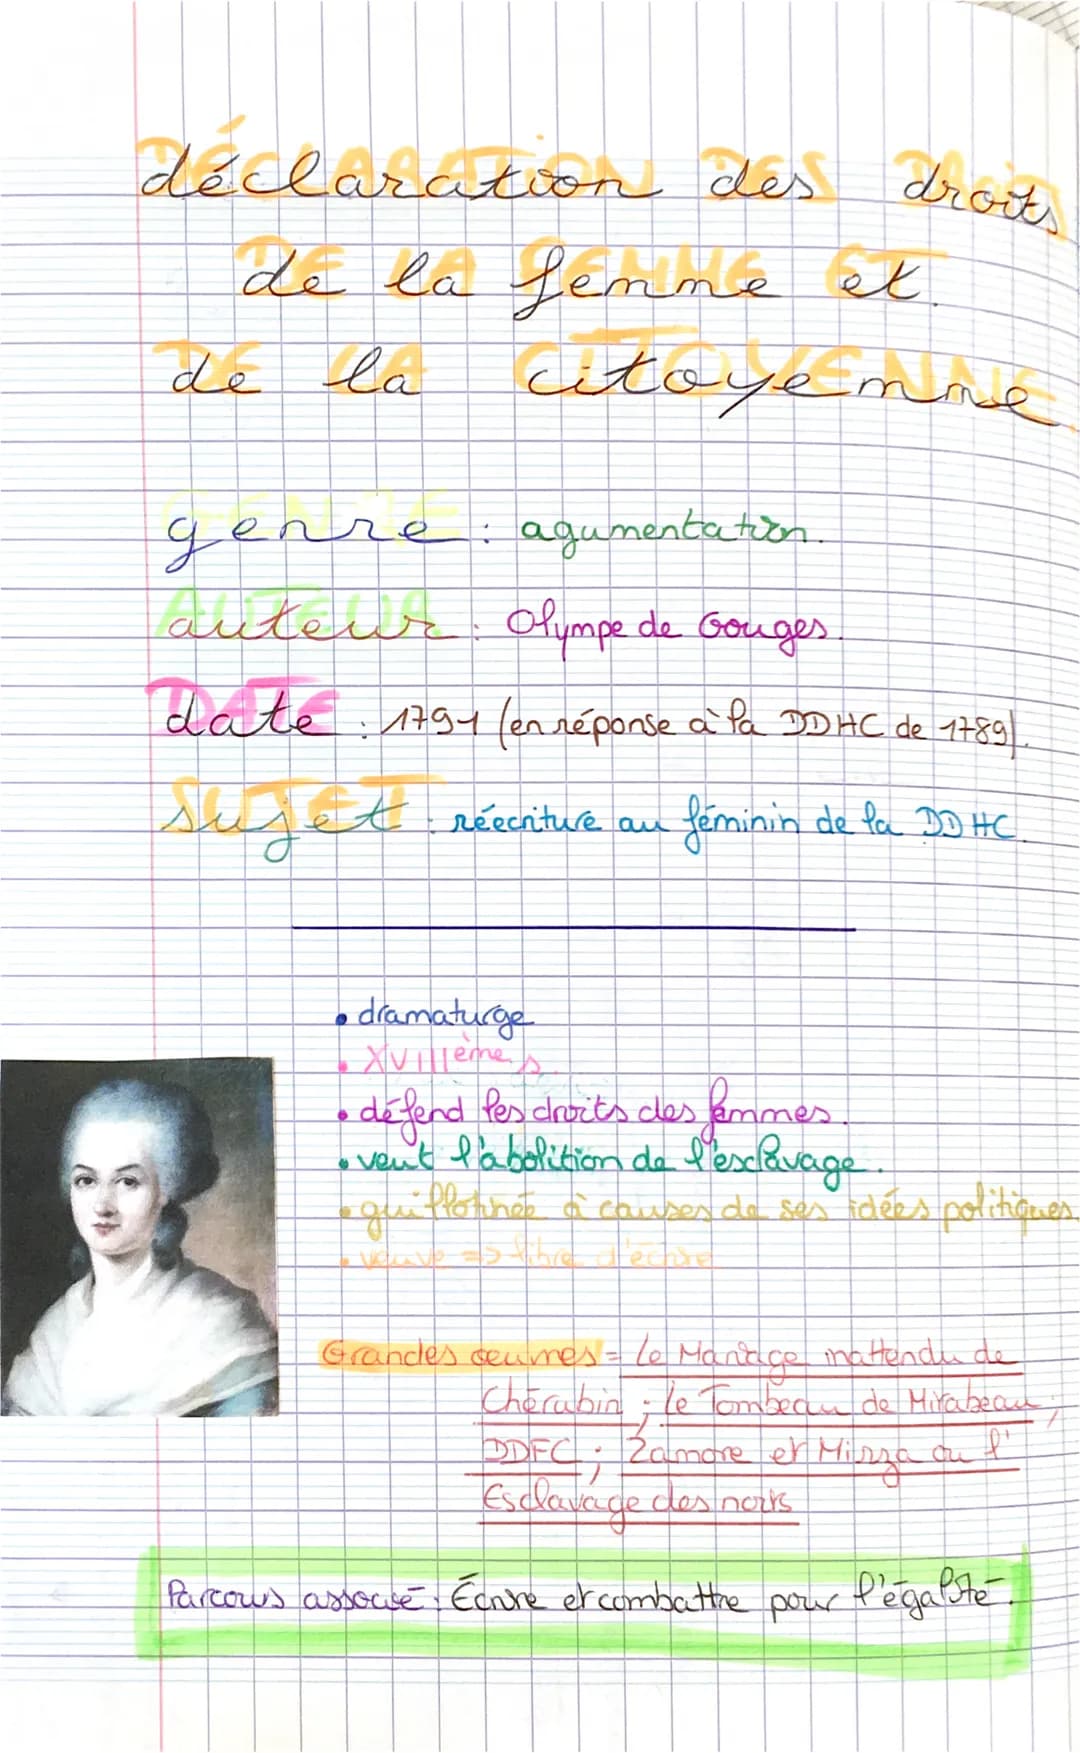 déclaration des droits
de la femme et
de la citoyenne
genre : agumentation.
auteur : Olympe de Gouges.
date : 1791 (en réponse à la DDHC de 1789).
sujet : réécriture au féminin de la DDHC.
• dramaturge
• XVIIIème s.
• défend les droits des femmes.
• veut l'abolition de l'esclavage.
• guillotinée à causes de ses idées politiques.
• veuve => libre d'écrire
Grandes œuvres = Le Mariage inattendu de
Chérubin ; Le Tombeau de Mirabeau ;
DDFC ; Zamore et Mirza ou l'
Esclavage des noirs
Parcours associé : Écrire et combattre pour l'égalité.